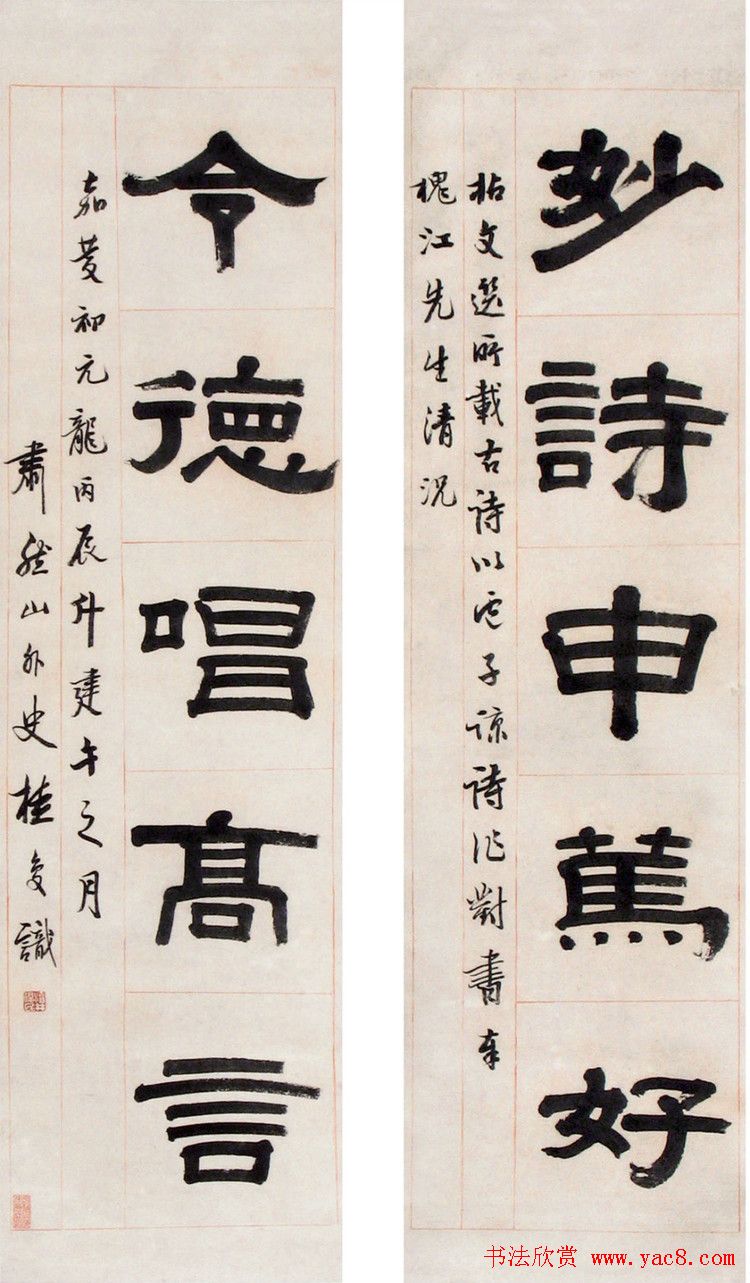 妙詩申篤好
拈文選所載古詩以子諒詩作對書奉
槐江先生清況
令德唱高言
嘉慶初元龍丙辰斗建午之月
肅然山外史桂复識
书法欣赏 www.yac8.com